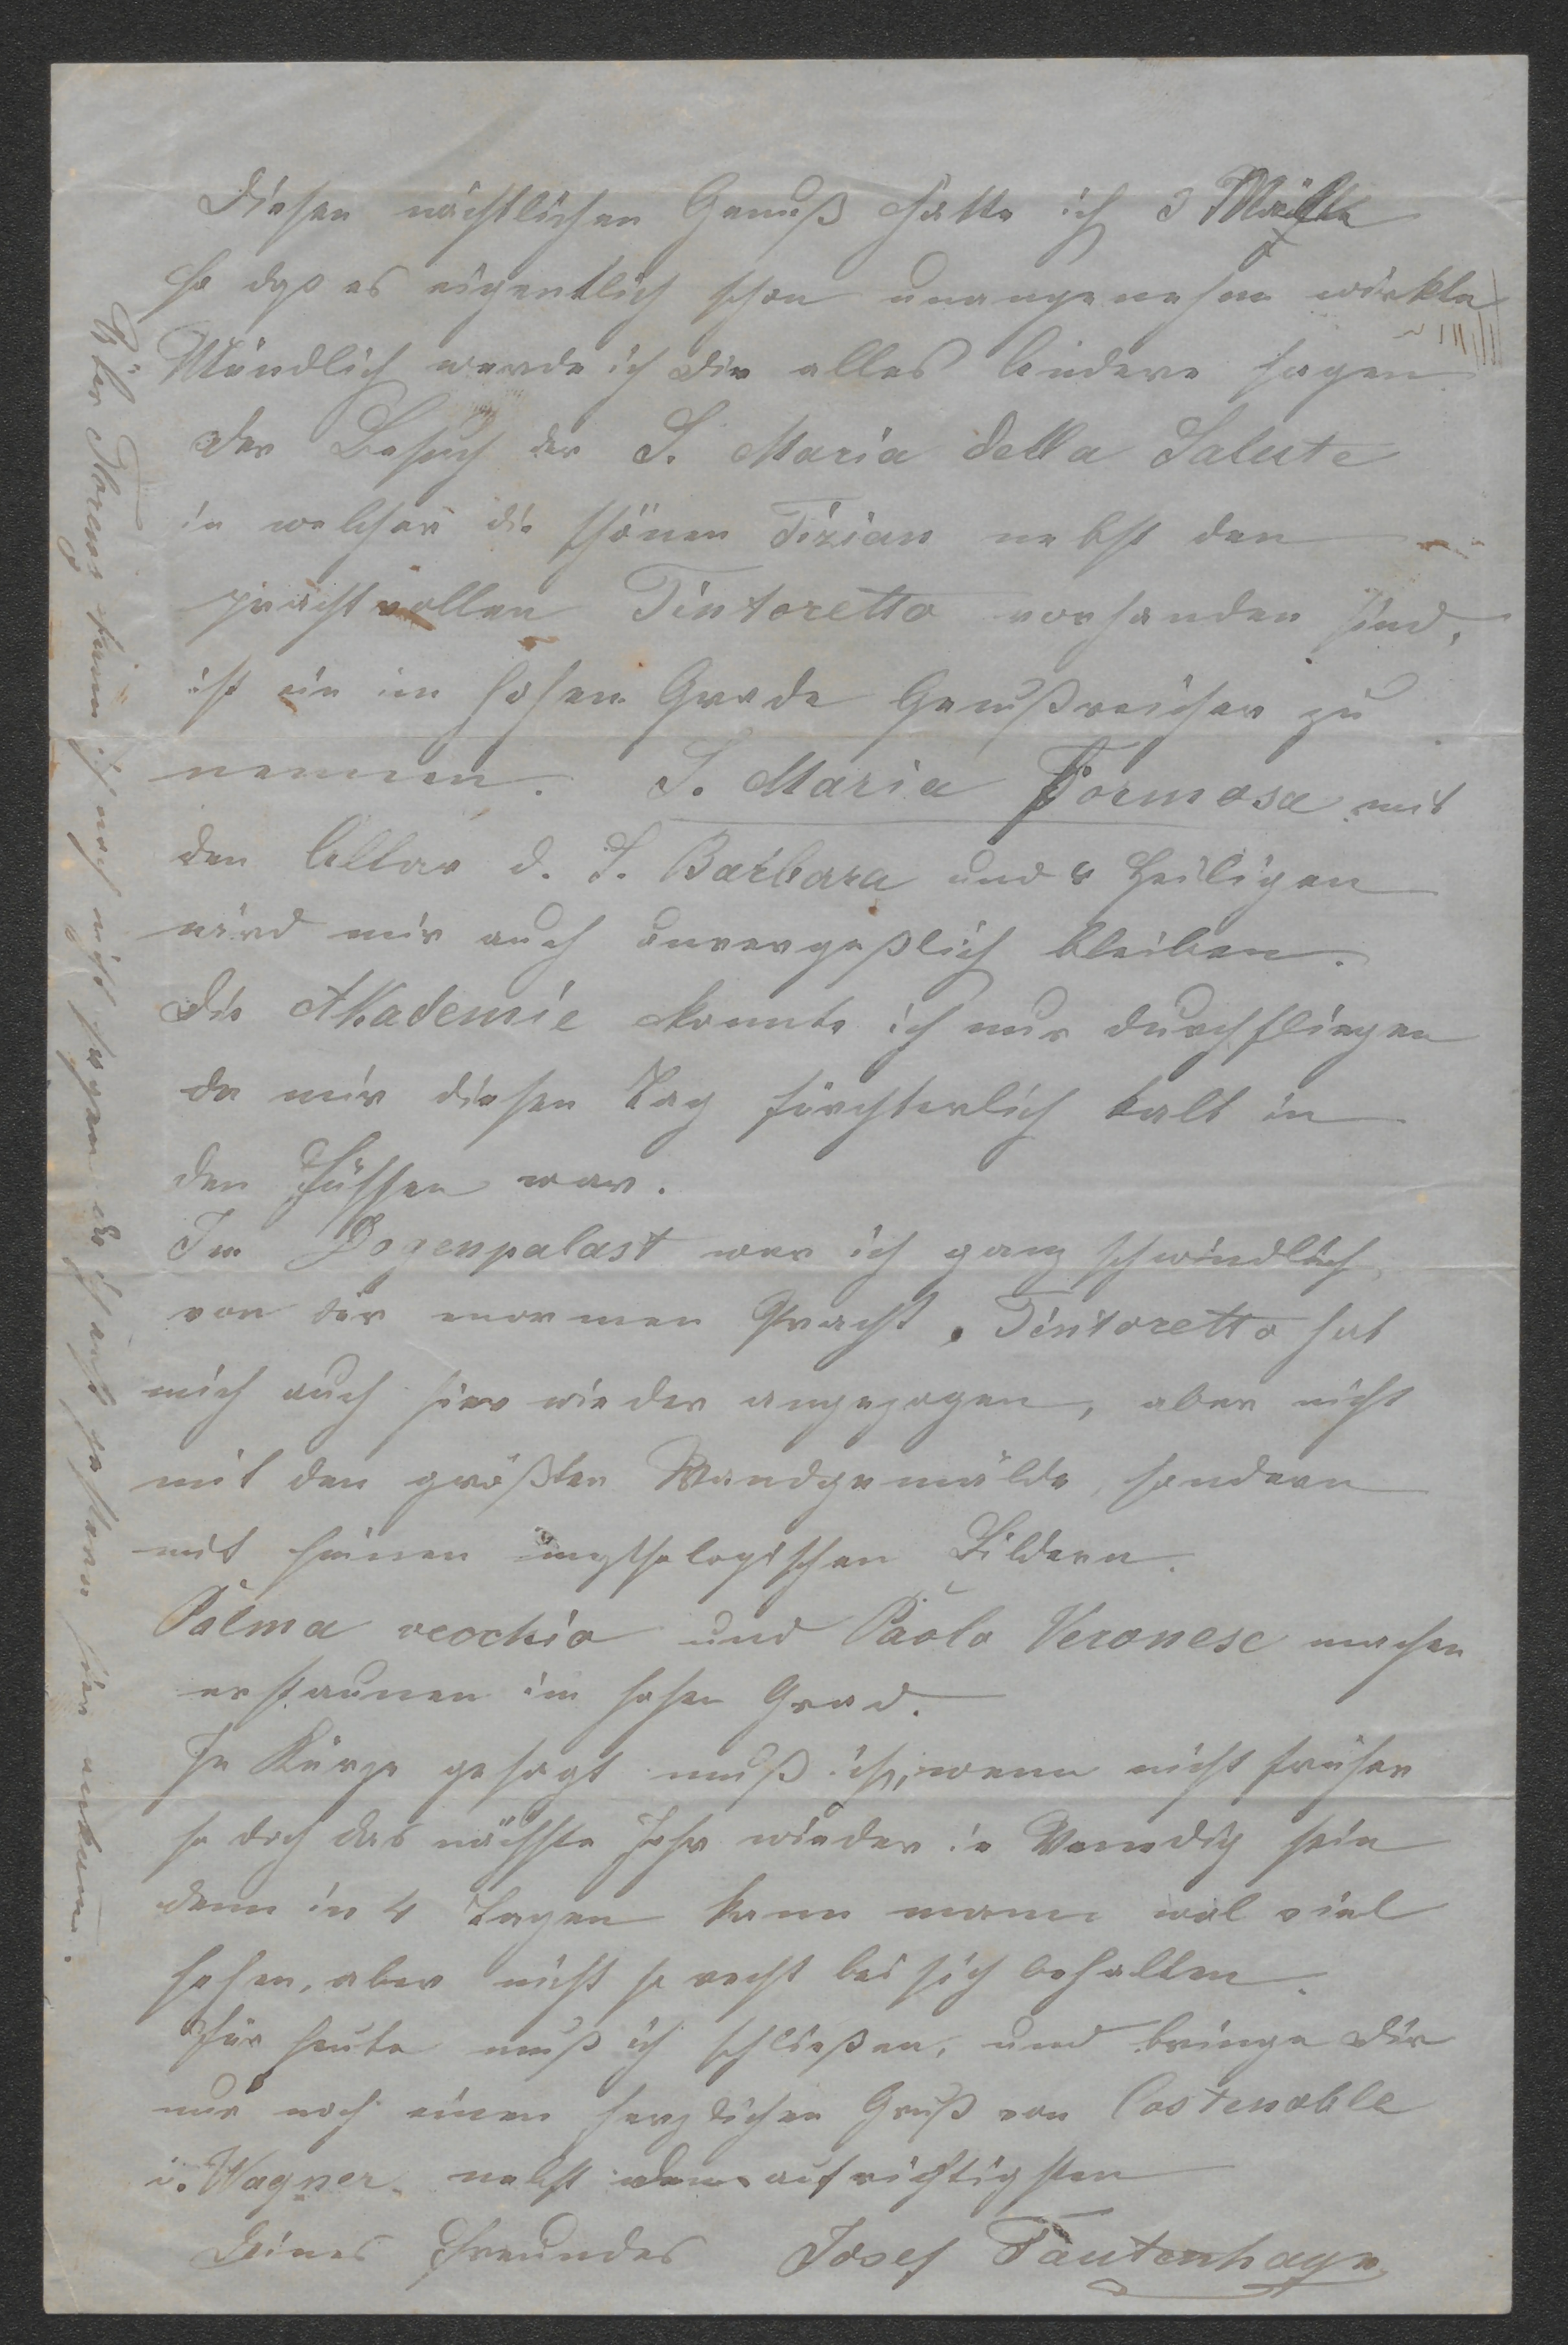 Diesen nächtlichen Genuß hatte ich 3 Nächte
so dß es eigentlich schon unangenehm wirkte
Mündlich werde ich Dir alles Andere sagen
Der Besuch der S. Maria della Salute
in welcher die schönen Tizian nebst den
prachtvollen Tintoretto vorhanden sind,
ist ein im hohen Grade Genußreicher zu
nennen. S. Maria Formosa mit
den Altar d. S. Barbara und 4 Heiligen
wird mir auch unvergeßlich bleiben.
Die Akademie konnte ich nur durchfliegen
da mir diesen Tag fürchterlich kalt in
den Füssen war.
Im Dogenpalast war ich ganz schwindlich
von der enormen Pracht. Tintoretto hat
mich auch hier wieder angezogen, aber nicht
mit den größten Wandgemälde, sondern
mit seinen mythologischen Bildern.
Palma vecchio und Paolo Veronese machen
erstaunen im hohen Grad.
In Kürze gesagt muß ich, wenn nicht früher
so doch das nächste Jahr wieder in Venedig sein
denn in 4 Tagen kann mann wol viel
sehen, aber nicht so recht bei sich behalten.
Für heute muß ich schließen, und bringe Dir
nur noch einen herzlichen Gruß von Costenoble
u. Wagner nebst dem aufrichtigsten
Deines Freundes Josef Tautenhayn
Über Florenz kann ich noch nicht sagen da ich erst gestern hier ankam.